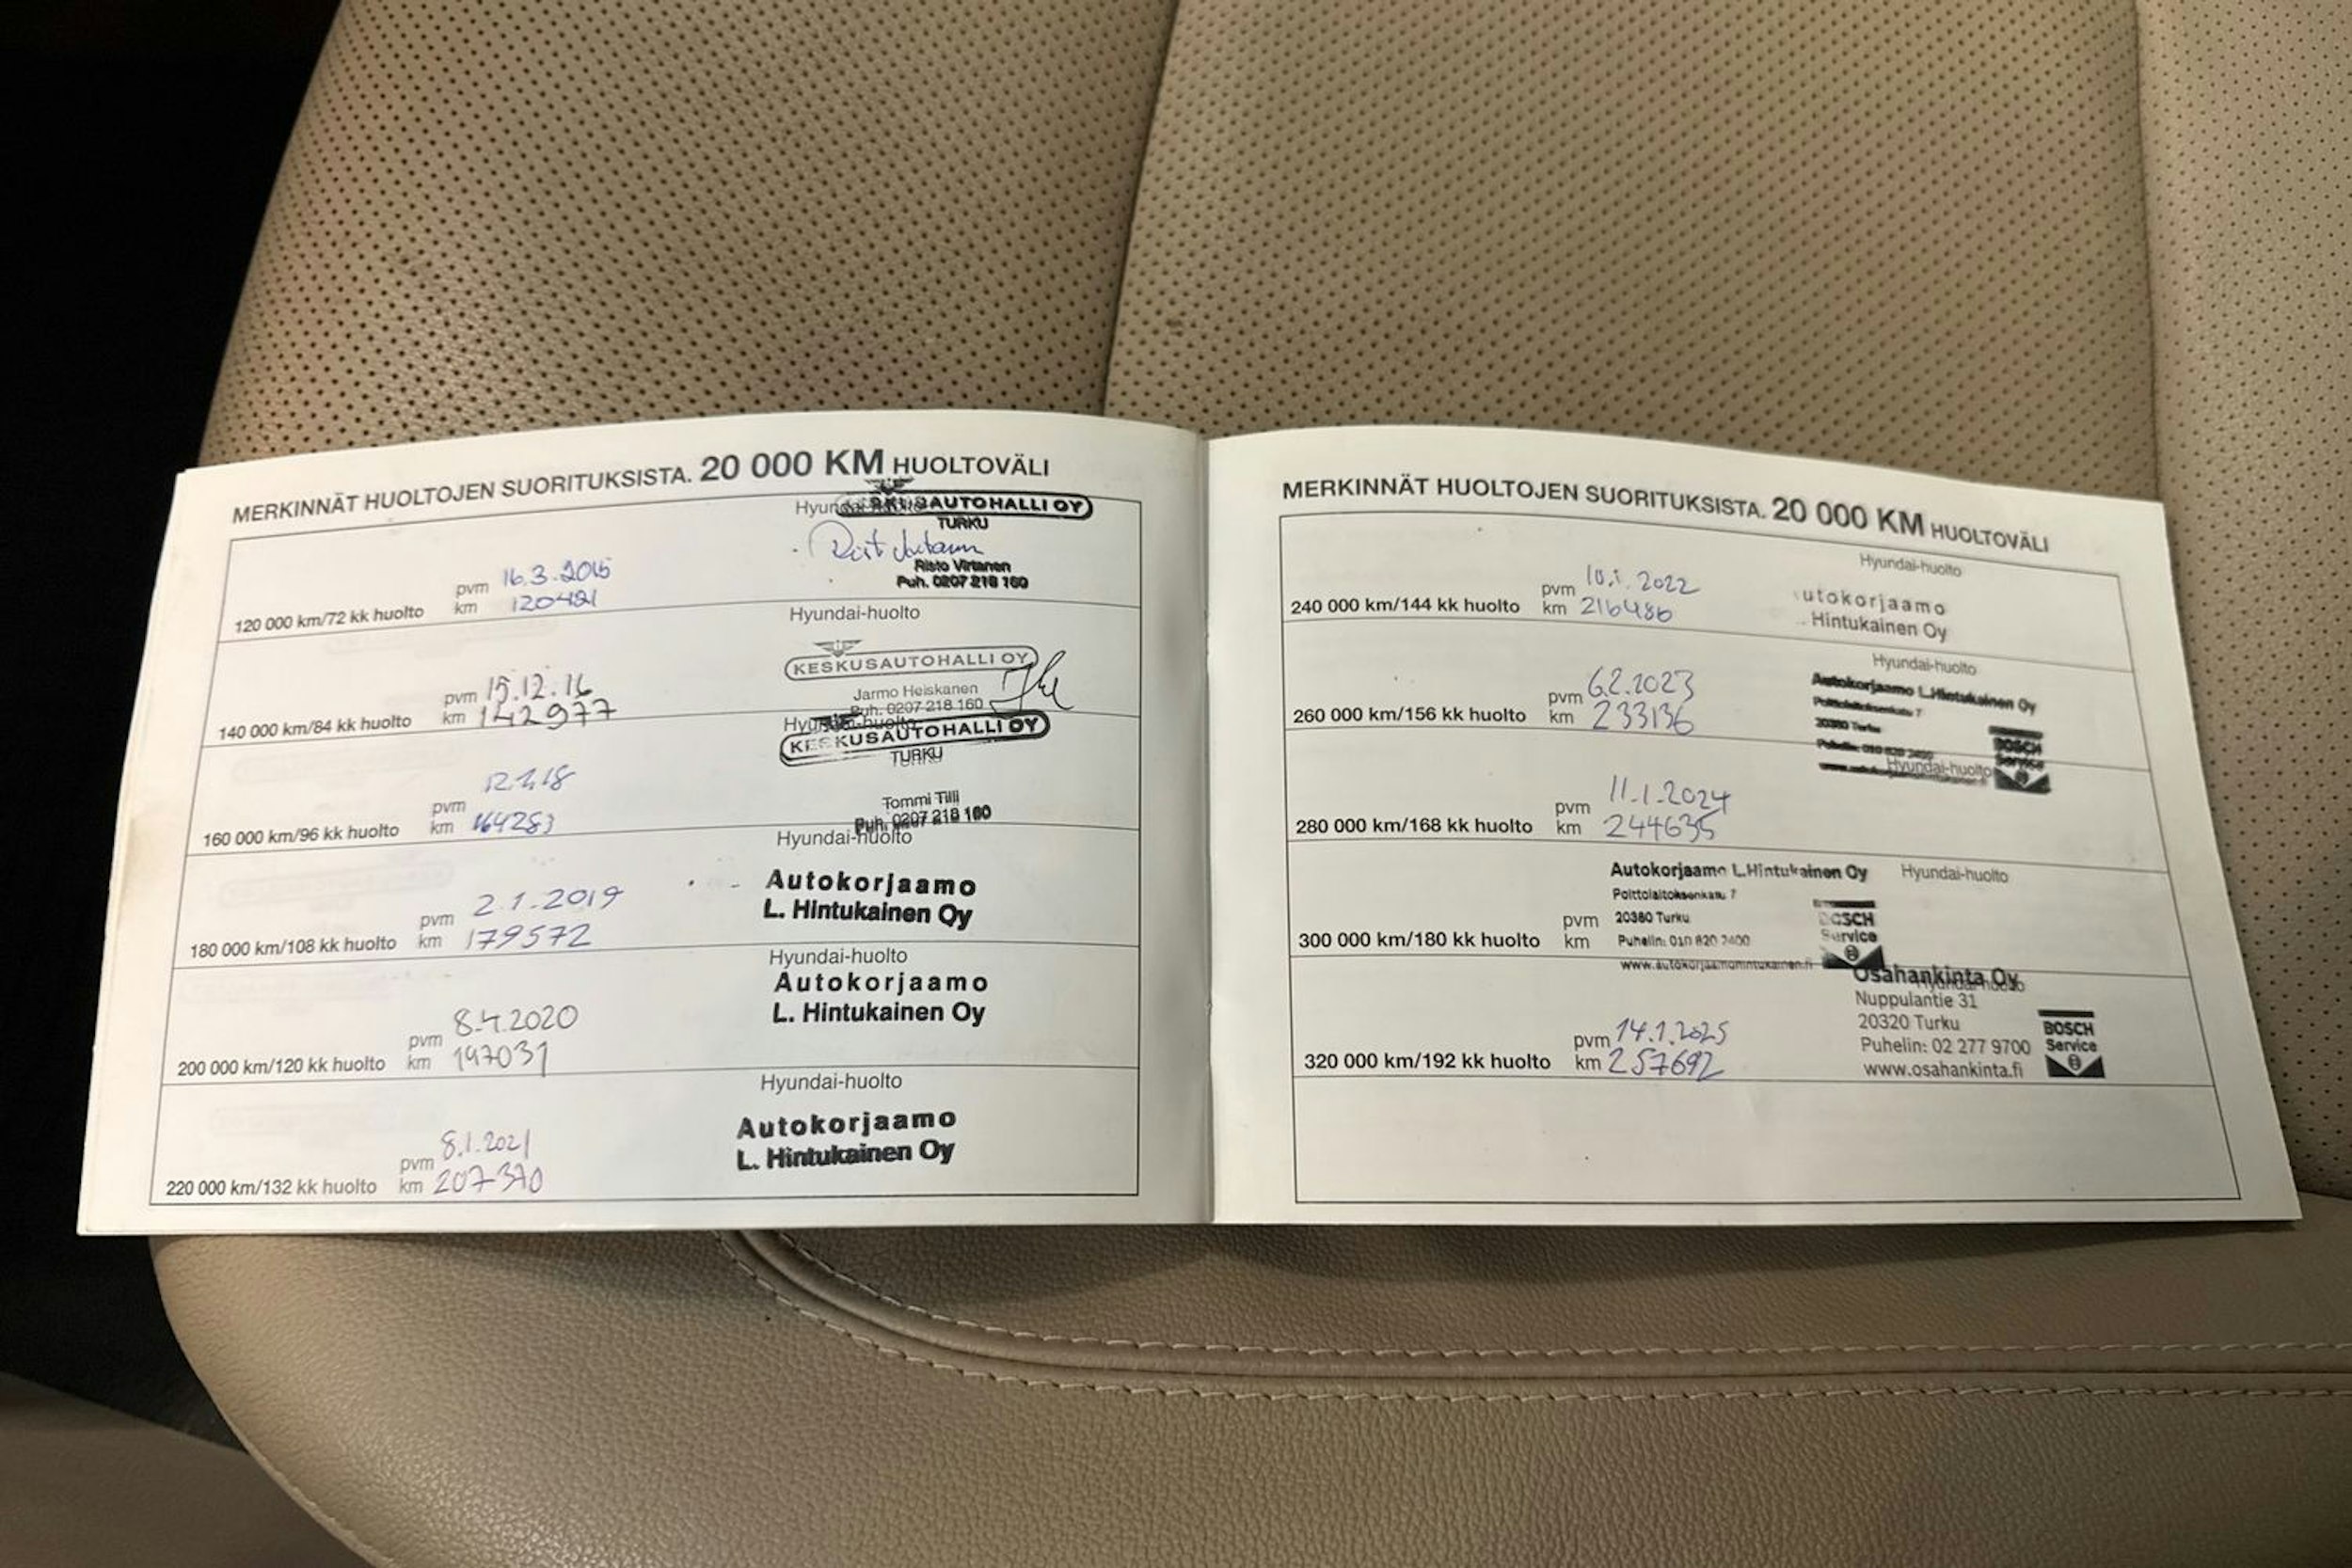 MERKINNÄT HUOLTOJEN SUORITUKSISTA. 20 000 KM HUOLTOVÄLI
AUTOHALLI OY
TURKU
Risto Virtanen
Puh. 0207 218 160
pvm 16.3.2015
120 000 km/72 kk huolto km 120421
Hyundai-huolto
KESKUSAUTOHALLI OY
Jarmo Heiskanen
Puh. 0207 218 160
pvm 15.12.16
140 000 km/84 kk huolto km 142977
Hyundai-huolto
KESKUSAUTOHALLI OY
TURKU
Tommi Tilli
Puh. 0207 218 160
pvm
160 000 km/96 kk huolto km 164283
Hyundai-huolto
Autokorjaamo
L. Hintukainen Oy
pvm 2.1.2019
180 000 km/108 kk huolto km 179572
Hyundai-huolto
Autokorjaamo
L. Hintukainen Oy
pvm 8.4.2020
200 000 km/120 kk huolto km 197031
Hyundai-huolto
Autokorjaamo
L. Hintukainen Oy
pvm 8.1.2021
220 000 km/132 kk huolto km 207370
MERKINNÄT HUOLTOJEN SUORITUKSISTA. 20 000 KM HUOLTOVÄLI
Hyundai-huolto
utokorjaamo
Hintukainen Oy
pvm 10.1.2022
240 000 km/144 kk huolto km 216486
Hyundai-huolto
Autokorjaamo L.Hintukainen Oy
20380 Turku
BOSCH
Service
pvm 6.2.2023
260 000 km/156 kk huolto km 233136
Hyundai-huolto
pvm 11.1.2024
280 000 km/168 kk huolto km 244635
Hyundai-huolto
Autokorjaamo L.Hintukainen Oy
Polttolaitoksenkatu 7
20380 Turku
Puhelin: 010 820 2400
www.autokorjaamohintukainen.fi
BOSCH
Service
pvm
300 000 km/180 kk huolto km
Hyundai-huolto
Osahankinta Oy
Nuppulantie 31
20320 Turku
Puhelin: 02 277 9700
www.osahankinta.fi
BOSCH
Service
pvm 14.1.2025
320 000 km/192 kk huolto km 257692